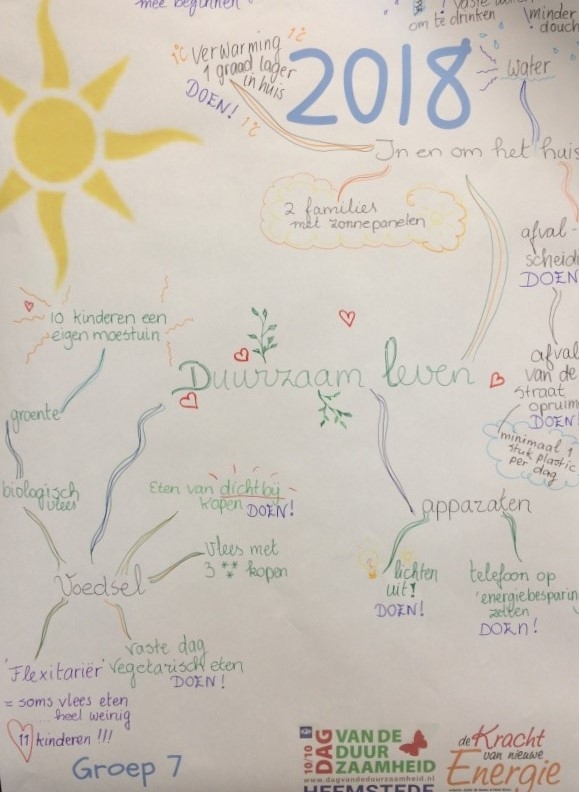 mee beginnen
vaste
om te drinken
minder
douch
Verwarming
1 graad lager
in huis
DOEN!
1°C
1°C
1°C
2018
Water
In en om het huis
2 families
met zonnepanelen
afval-
scheidi
DOEN
10 kinderen een
eigen moestuin
Duurzaam leven
afval
van de
straat
opruim
DOEN!
minimaal 1
stuk plastic
per dag
groente
biologisch
vlees
Eten van dichtbij
kopen DOEN!
Vlees met
3 ** kopen
Voedsel
apparaten
lichten
uit!
DOEN!
telefoon op
energiebesparin
zetten
DOEN!
'Flexitariër'
= soms vlees eten
... heel weinig
11 kinderen !!!
vaste dag
vegetarisch eten
DOEN!
Groep 7
10/10
DAG
VAN DE
DUUR
ZAAMHEID
www.dagvandeduurzaamheid.nl
HEEMSTEDE
de Kracht
van nieuwe
Energie